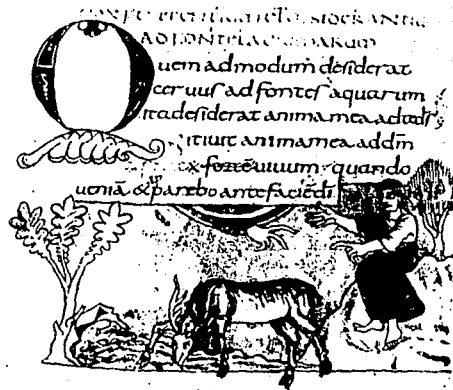 Quem admodum desiderat
ceruus ad fontes aquarum
ita desiderat anima mea ad
sitiuit anima mea ad dm̄
fontē uiuum quando
ueniā & parebo ante faciē di